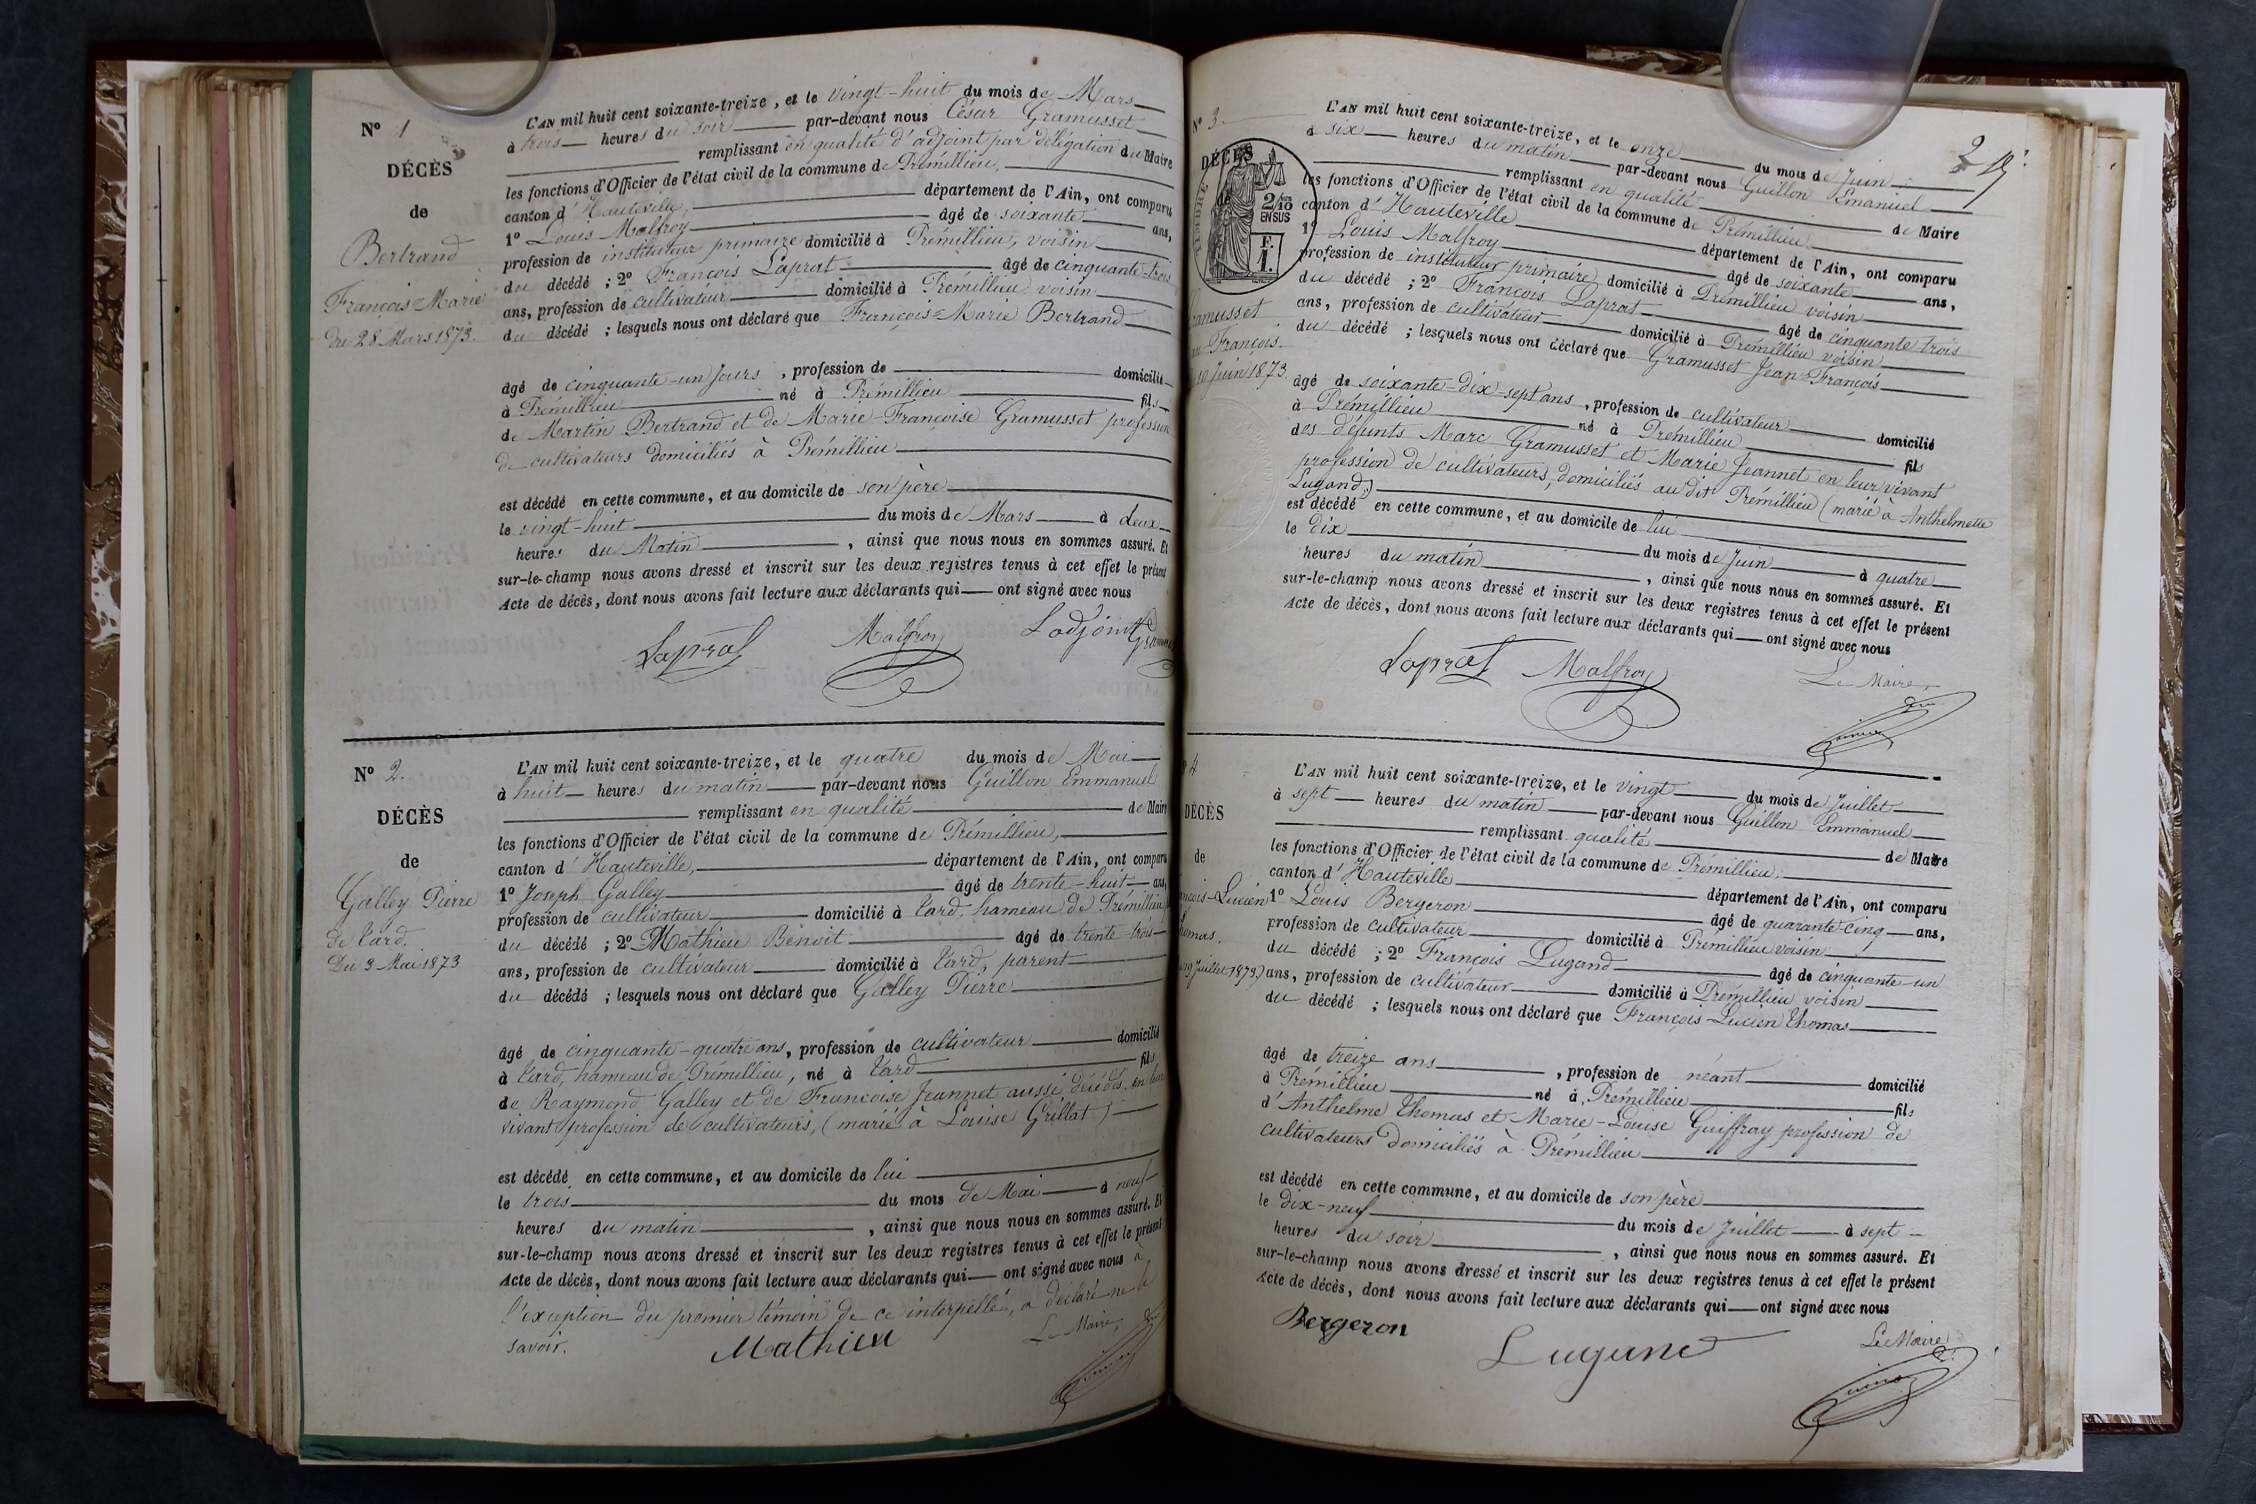 N° 1
DÉCÈS
de
Bertrand
François-Marie
du 28 Mars 1873.
L'AN mil huit cent soixante-treize, et le vingt-huit du mois de Mars
à trois heures du soir par-devant nous César Gramusset
remplissant en qualité d'adjoint par délégation du Maire
les fonctions d'Officier de l'état civil de la commune de Prémillieu,
canton d'Hauteville, département de l'Ain, ont comparu
1° Louis Malfroy âgé de soixante ans,
profession de instituteur primaire domicilié à Prémillieu, voisin
du décédé ; 2° François Laprat âgé de cinquante-trois
ans, profession de cultivateur domicilié à Prémillieu voisin
du décédé ; lesquels nous ont déclaré que François-Marie Bertrand
âgé de cinquante-un jours, profession de domicilié
à Prémillieu né à Prémillieu fils
de Martin Bertrand et de Marie-Françoise Gramusset profession
de cultivateurs domiciliés à Prémillieu
est décédé en cette commune, et au domicile de son père
le vingt-huit du mois de Mars à deux
heures du Matin, ainsi que nous nous en sommes assuré. Et
sur-le-champ nous avons dressé et inscrit sur les deux registres tenus à cet effet le présent
Acte de décès, dont nous avons fait lecture aux déclarants qui ont signé avec nous
Laprat Malfroy L'adjoint
N° 2.
DÉCÈS
de
Galley Pierre
de Lard.
Du 3 Mai 1873
L'AN mil huit cent soixante-treize, et le quatre du mois de Mai
à huit heures du matin par-devant nous Guillon Emmanuel
remplissant en qualité de Maire
les fonctions d'Officier de l'état civil de la commune de Prémillieu,
canton d'Hauteville, département de l'Ain, ont comparu
1° Joseph Galley âgé de trente-huit ans,
profession de cultivateur domicilié à Lard, hameau de Prémillieu
du décédé ; 2° Mathieu Benoit âgé de trente-trois
ans, profession de cultivateur domicilié à Lard, parent
du décédé ; lesquels nous ont déclaré que Galley Pierre
âgé de cinquante-quatre ans, profession de cultivateur domicilié
à Lard, hameau de Prémillieu, né à Lard fils
de Raymond Galley et de Françoise Jeannet aussi décédés, en leur
vivant profession de cultivateurs, (marié à Louise Grillat)
est décédé en cette commune, et au domicile de lui
le trois du mois de Mai à neuf
heures du matin, ainsi que nous nous en sommes assuré. Et
sur-le-champ nous avons dressé et inscrit sur les deux registres tenus à cet effet le présent
Acte de décès, dont nous avons fait lecture aux déclarants qui ont signé avec nous à
l'exception du premier témoin de ce interpellé, a déclaré ne le
savoir.
Mathieu Le Maire,
2
N° 3.
DÉCÈS
2/10
EN SUS
F.
1.
François.
10 Juin 1873.
L'AN mil huit cent soixante-treize, et le onze du mois de Juin
à six heures du matin par-devant nous Guillon Emanuel
remplissant en qualité de Maire
les fonctions d'Officier de l'état civil de la commune de Prémillieu
canton d'Hauteville département de l'Ain, ont comparu
1° Louis Malfroy âgé de soixante ans,
profession de instituteur primaire domicilié à Prémillieu voisin
du décédé ; 2° François Laprat âgé de cinquante trois
ans, profession de cultivateur domicilié à Prémillieu voisin
du décédé ; lesquels nous ont déclaré que Gramusset Jean-François
âgé de soixante-dix-sept ans, profession de cultivateur domicilié
à Prémillieu né à Prémillieu fils
des défunts Marc Gramusset et Marie Jeannet en leur vivant
profession de cultivateurs, domiciliés au dit Prémillieu (marié à Anthelmette
Lugand)
est décédé en cette commune, et au domicile de lui
le dix du mois de Juin à quatre
heures du matin, ainsi que nous nous en sommes assuré. Et
sur-le-champ nous avons dressé et inscrit sur les deux registres tenus à cet effet le présent
Acte de décès, dont nous avons fait lecture aux déclarants qui ont signé avec nous
Laprat Malfroy Le Maire,
4
DÉCÈS
de
19 Juillet 1873.)
L'AN mil huit cent soixante-treize, et le vingt du mois de Juillet
à sept heures du matin par-devant nous Guillon Emmanuel
remplissant qualité de Maire
les fonctions d'Officier de l'état civil de la commune de Prémillieu,
canton d'Hauteville département de l'Ain, ont comparu
1° Louis Bergeron âgé de quarante-cinq ans,
profession de cultivateur domicilié à Prémillieu voisin
du décédé ; 2° François Lugand âgé de cinquante-un
ans, profession de cultivateur domicilié à Prémillieu voisin
du décédé ; lesquels nous ont déclaré que François-Lucien Thomas
âgé de treize ans, profession de néant domicilié
à Prémillieu né à Prémillieu fils
d'Anthelme Thomas et Marie-Louise Guiffray profession de
cultivateurs domiciliés à Prémillieu
est décédé en cette commune, et au domicile de son père
le dix-neuf du mois de Juillet à sept
heures du soir, ainsi que nous nous en sommes assuré. Et
sur-le-champ nous avons dressé et inscrit sur les deux registres tenus à cet effet le présent
Acte de décès, dont nous avons fait lecture aux déclarants qui ont signé avec nous
Bergeron Le Maire